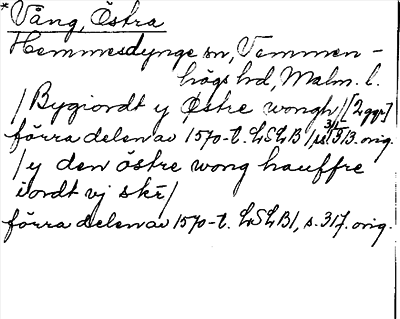 * Vång, Östra
Hemmesdynge sn, Vemmen-
högs hd, Malm. l.
/Bygiordt y Østre wongh/[2 ggr]
förra delen av 1570-t. LSLB, s. 313. orig.
/y den östre wong hauffre
iordt vj skr/
förra delen av 1570-t. LSLB1, s. 317. orig.